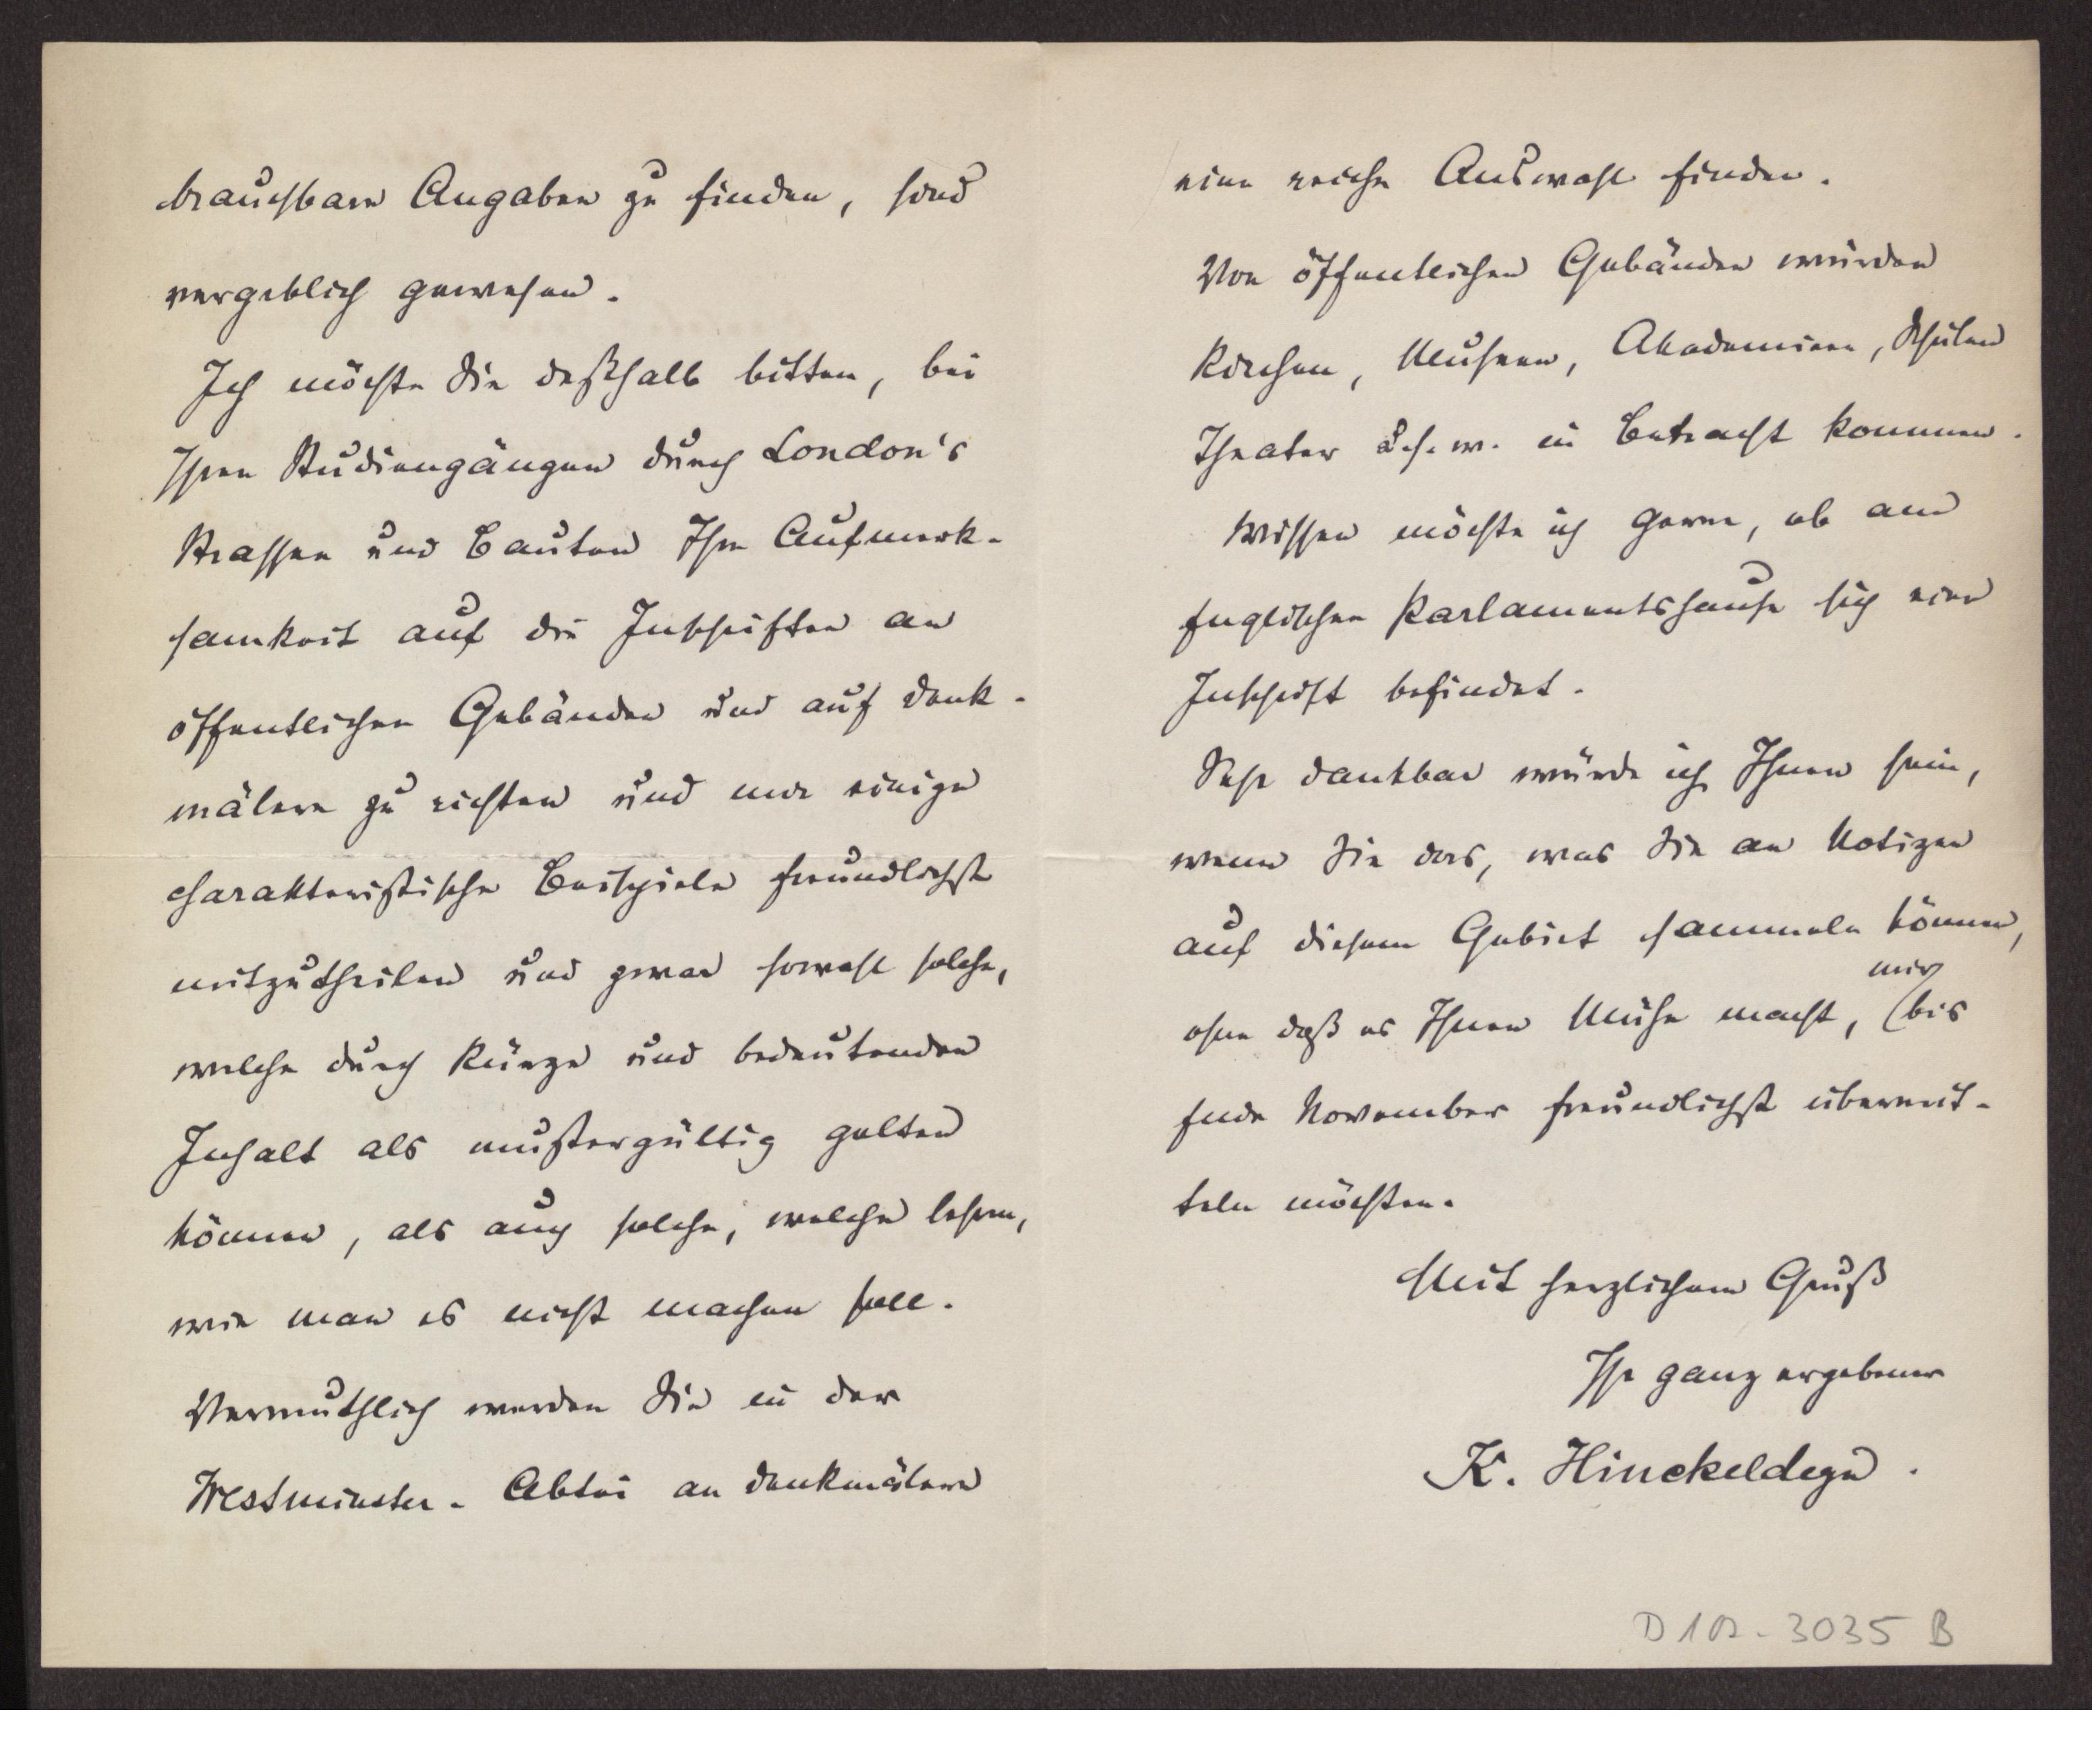 brauchbare Angaben zu finden, sind
vergeblich gewesen.
Ich möchte Sie deßhalb bitten, bei
Ihren Studiengängen durch London's
Strassen und Bauten Ihre Aufmerk-
samkeit auf die Inschriften an
öffentlichen Gebäuden und auf Denk-
mälern zu richten und mir einige
charakteristische Beispiele freundlichst
mitzutheilen und zwar sowohl solche,
welche durch Kürze und bedeutenden
Inhalt als mustergültig gelten
können, als auch solche, welche lehren,
wie man es nicht machen soll.
Vermuthlich werden Sie in der
Westminster-Abtei an Denkmälern
eine reiche Auswahl finden.
Von öffentlichen Gebäuden würden
Kirchen, Museen, Akademieen, Schulen
Theater u.s.w. in Betracht kommen.
Wissen möchte ich gerne, ob am
Englischen Parlamentshause sich eine
Inschrift befindet.
Sehr dankbar würde ich Ihnen sein,
wenn Sie das, was Sie an Notizen
auf diesem Gebiet sammeln können,
mir
ohne daß es Ihnen Mühe macht, (bis
Ende November freundlichst übermit-
teln möchten.
Mit herzlichem Gruß
Ihr ganz ergebener
K. Hinckeldeyn.
D 102-3035 B